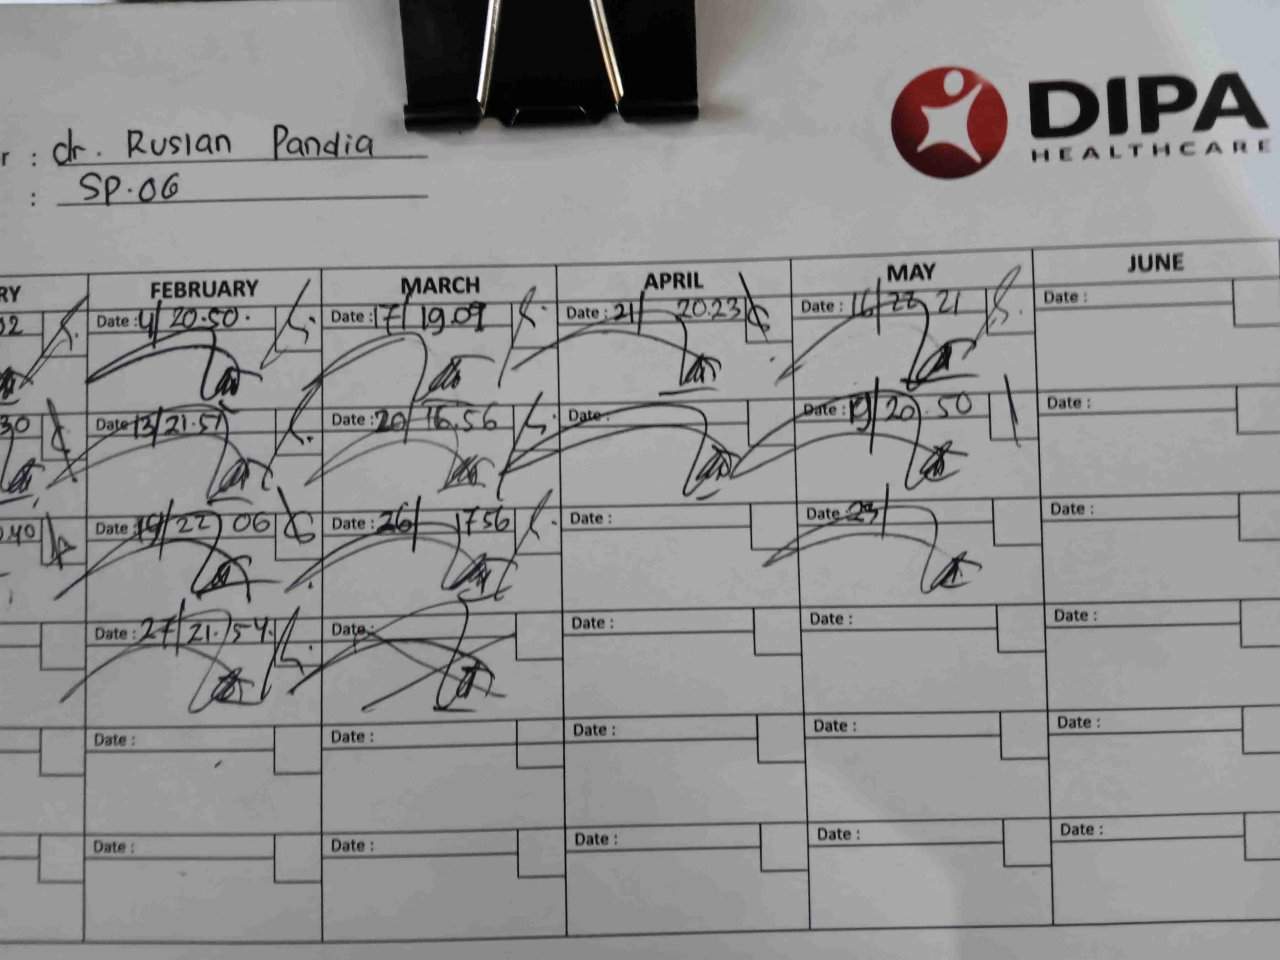 DIPA
HEALTHCARE
r : dr. Ruslan Pandia
: SP.06
RY FEBRUARY MARCH APRIL MAY JUNE
Date : 4/ 20.50. Date : 17/ 19.09 Date : 21/ 20.23 Date : 16/ 22 21 Date :
30 Date 13/21.57 Date : 20/ 16.56 Date : Date : 19/ 20.50 Date :
.40 Date : 19/ 22 06 Date : 26/ 1756 Date : Date : 23/ Date :
Date : 27/ 21.54. Date : Date : Date : Date :
Date : Date : Date : Date : Date :
Date : Date : Date : Date : Date :